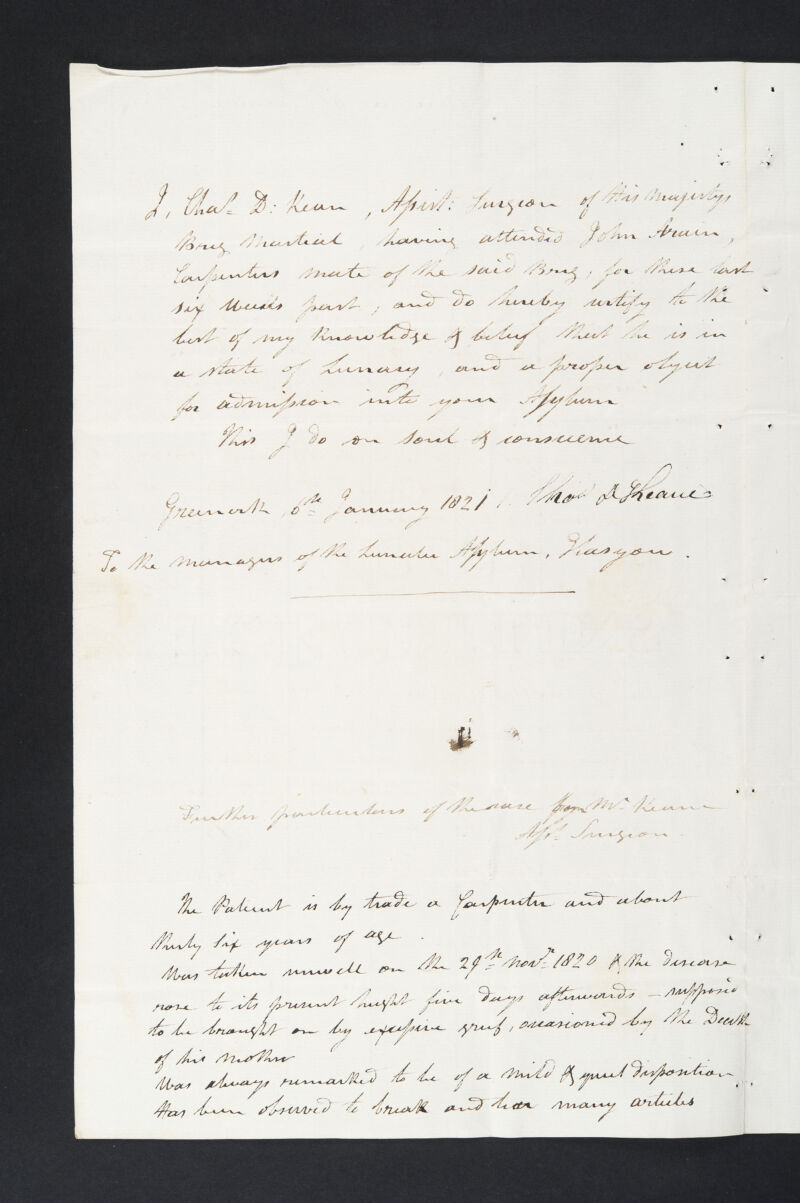 I, Chas. D: Kean, Assist: Surgeon of His Majestys
Brig Martial, having attended John
Carpenters mate of the said Brig, for these last
six weeks past, and do hereby certify to the
best of my knowledge & belief that he is in
a state of Lunacy, and a proper object
for admission into your Asylum
This I do on soul & conscience
Greenock, 6th January 1821 Chas D Keane
To the managers of the Lunatic Asylum, Glasgow.
Further particulars of the case from Mr Keane
Asst Surgeon.
The Patient is by trade a Carpenter and about
thirty six years of age.
Was taken unwell on the 29th Novr 1820 & the disease
rose to its present height five days afterwards - supposed
to be brought on by excessive grief, occasioned by the Death
of his mother
Was always remarked to be of a mild & quiet disposition
Has been observed to break and tear many articles